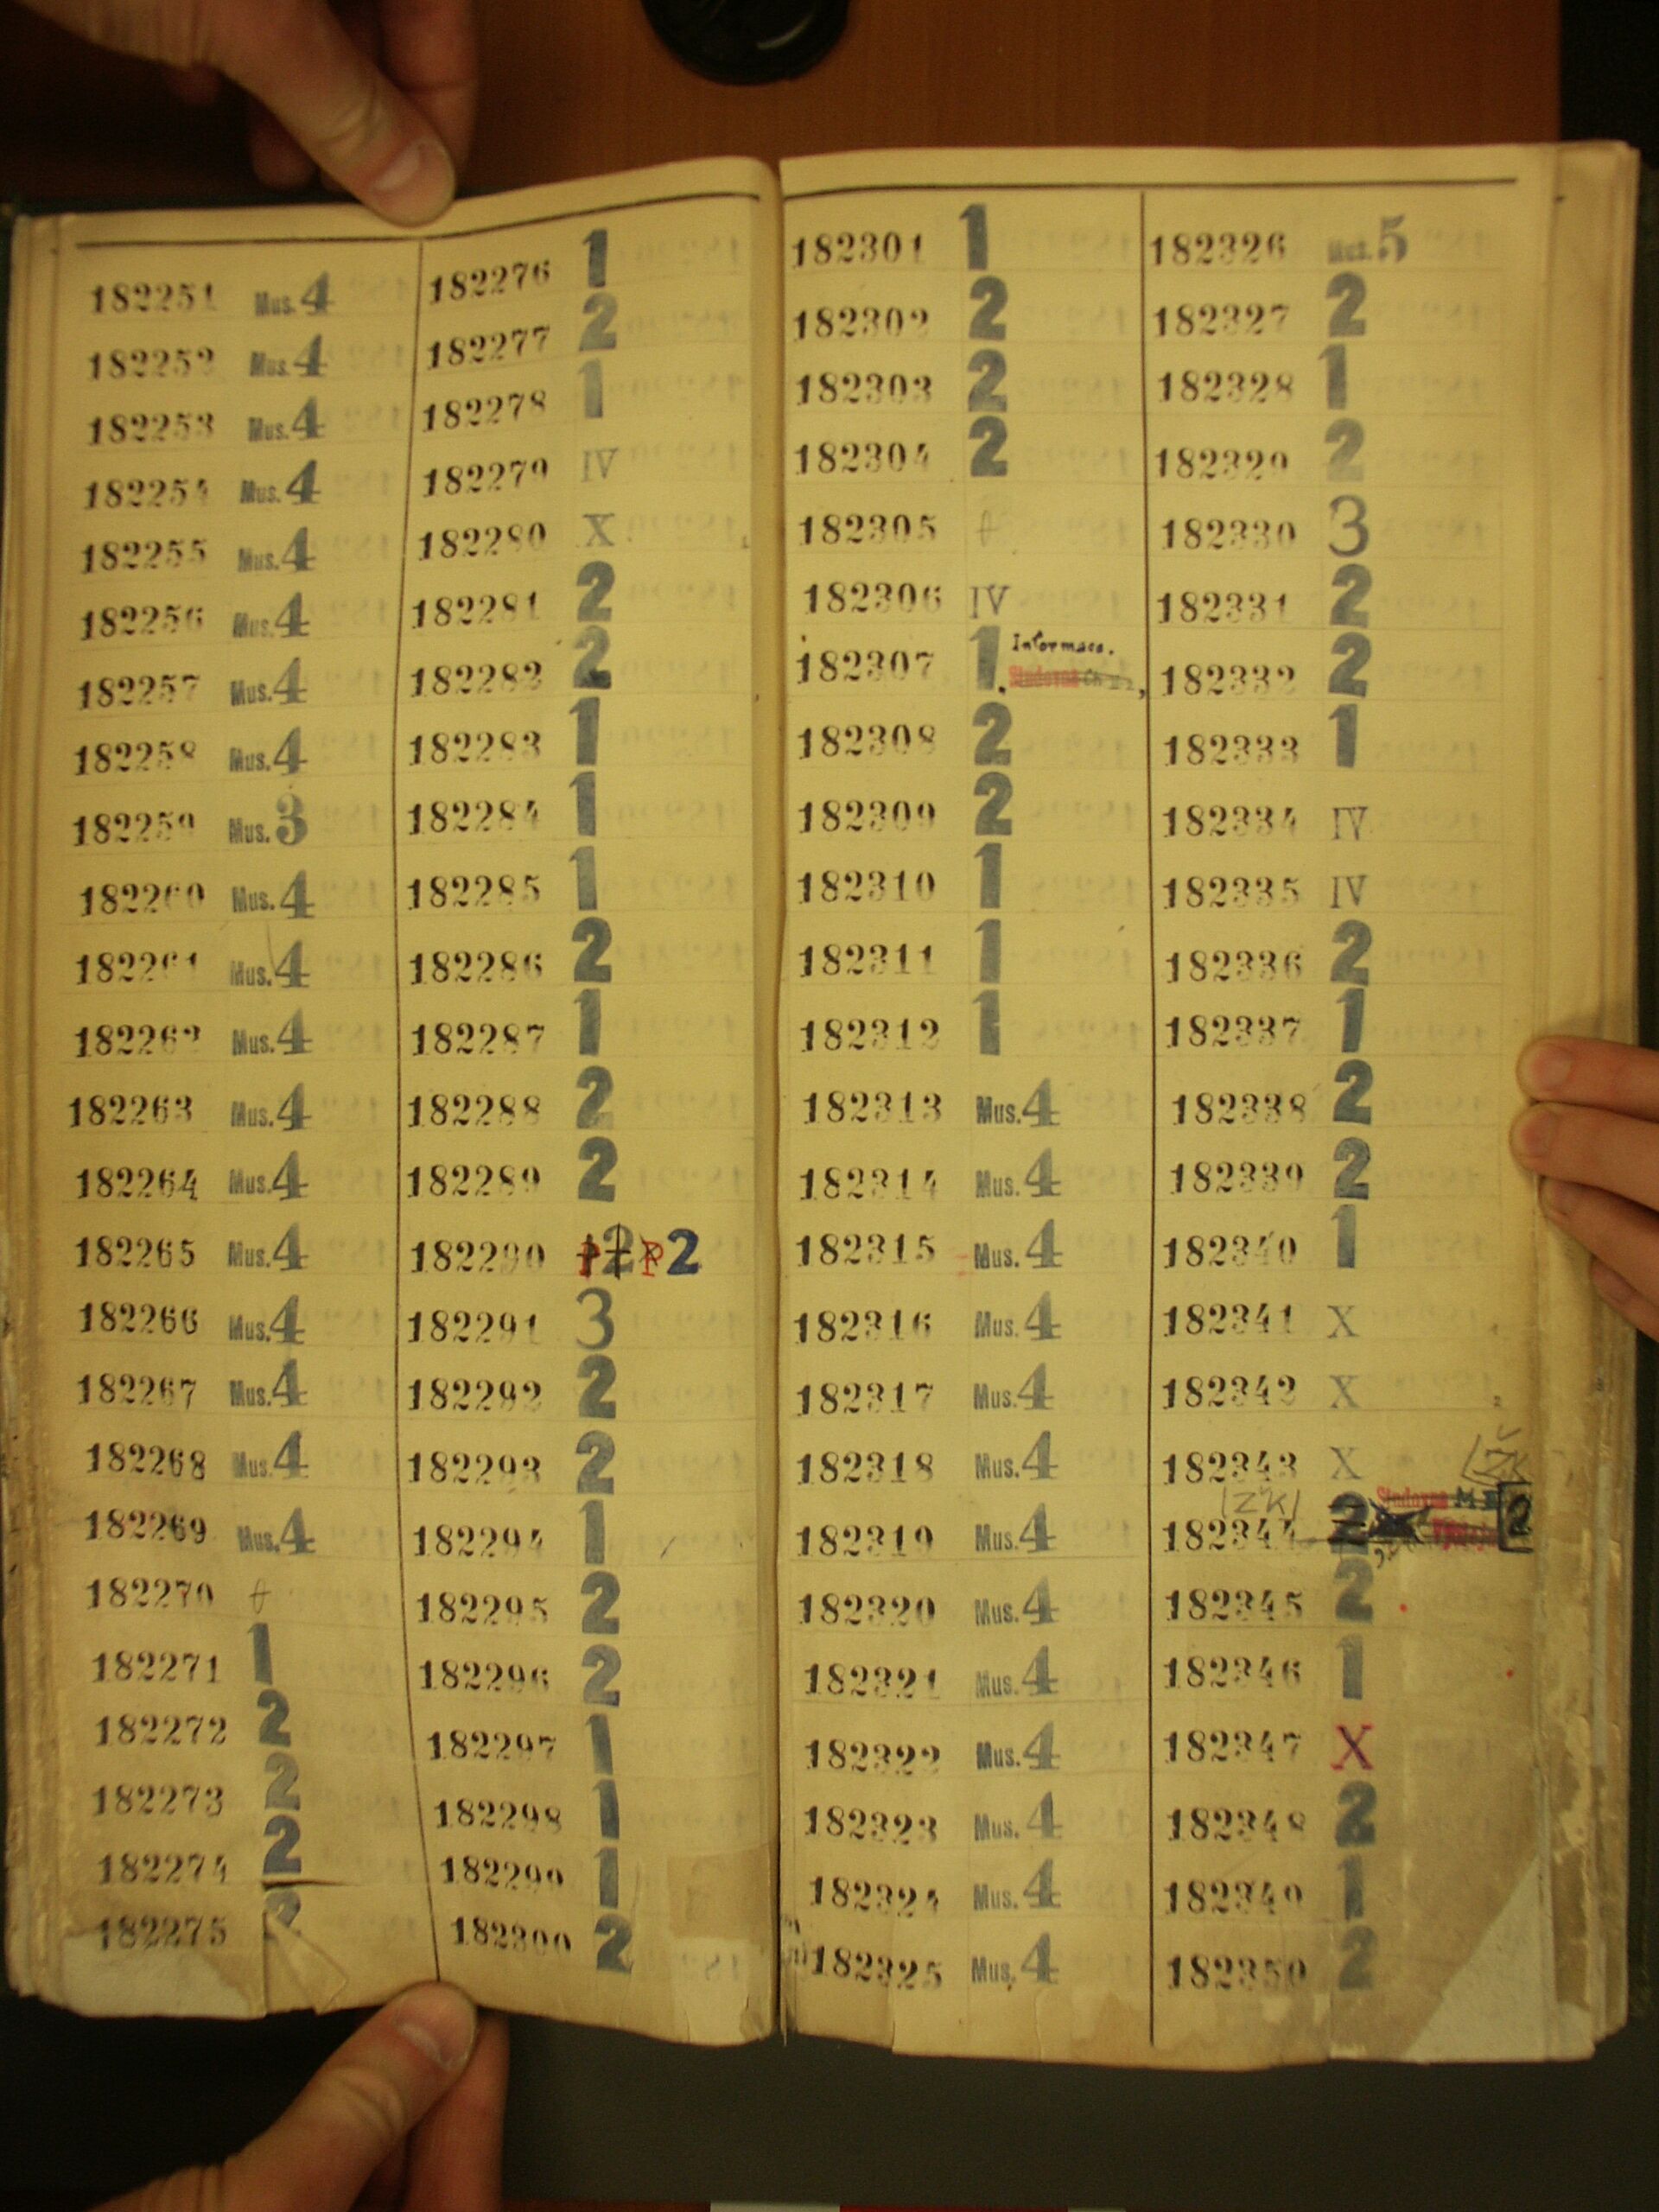 182251 Mus. 4
182252 Mus. 4
182253 Mus. 4
182254 Mus. 4
182255 Mus. 4
182256 Mus. 4
182257 Mus. 4
182258 Mus. 4
182259 Mus. 3
182260 Mus. 4
182261 Mus. 4
182262 Mus. 4
182263 Mus. 4
182264 Mus. 4
182265 Mus. 4
182266 Mus. 4
182267 Mus. 4
182268 Mus. 4
182269 Mus. 4
182270 †
182271 1
182272 2
182273 2
182274 2
182275 2
182276 1
182277 2
182278 1
182279 IV
182280 X
182281 2
182282 2
182283 1
182284 1
182285 1
182286 2
182287 1
182288 2
182289 2
182290 P 2 P 2
182291 3
182292 2
182293 2
182294 1
182295 2
182296 2
182297 1
182298 1
182299 1
182300 2
182301 1
182302 2
182303 2
182304 2
182305 †
182306 IV
182307 1 Informace.
Studovna
182308 2
182309 2
182310 1
182311 1
182312 1
182313 Mus. 4
182314 Mus. 4
182315 Mus. 4
182316 Mus. 4
182317 Mus. 4
182318 Mus. 4
182319 Mus. 4
182320 Mus. 4
182321 Mus. 4
182322 Mus. 4
182323 Mus. 4
182324 Mus. 4
182325 Mus. 4
182326 Mus. 5
182327 2
182328 1
182329 2
182330 3
182331 2
182332 2
182333 1
182334 IV
182335 IV
182336 2
182337 1
182338 2
182339 2
182340 1
182341 X
182342 X
182343 X
Studovna
182344 2 2
182345 2
182346 1
182347 X
182348 2
182349 1
182350 2